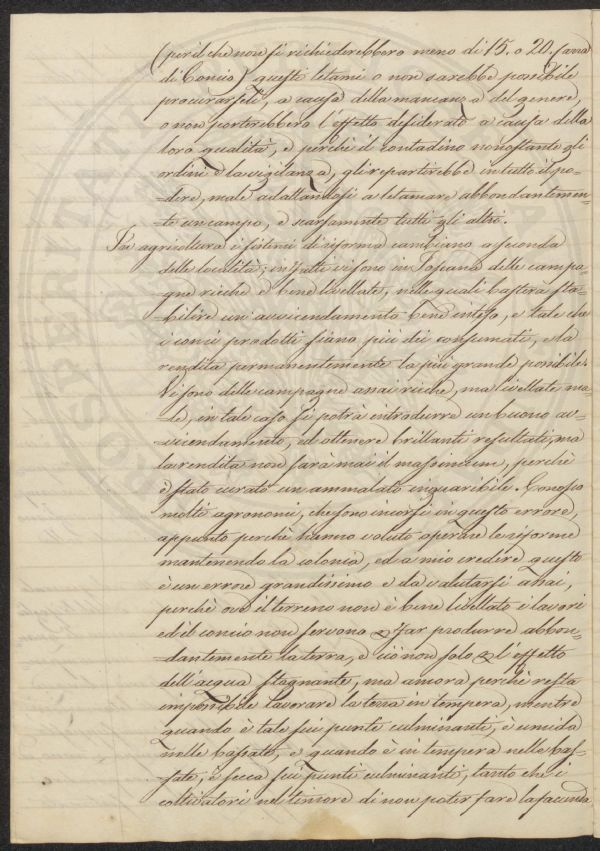 (per il che non si richiederebbero meno di 15. o 20. Some
di Concio) questi letami o non sarebbe possibile
procurarseli, a causa della mancanza del genere,
o non porterebbero l'effetto desiderato a causa della
loro qualità, e perchè il contadino nonostante gli
ordini e la vigilanza, gli repartirebbe in tutto il po=
=dere, male adattandosi a letamare abbondantemen=
=te un campo, e scarsamente tutti gli altri.
In agricoltura i sistemi di riforma cambiano a seconda
delle località; infatti vi sono in Toscana delle campa=
gne ricche e bene livellate, nelle quali basterà sta=
bilire un'avvicendamento bene inteso, e tale che
i conci prodotti siano più dei consumati, e la
rendita permanentemente la più grande possibile.
Vi sono delle campagne assai ricche, ma livellate ma=
le, in tale caso si potrà introdurre un buono av=
=vicendamento, ed ottenere brillanti resultati, ma
la rendita non sarà mai il massimum, perchè
è stato curato un'ammalato inguaribile. Conosco
molti agronomi, che sono incorsi in questo errore,
appunto perchè hanno voluto operare le riforme
mantenendo la colonia, ed a mio credere questo
è un errore grandissimo e da valutarsi assai,
perchè ove il terreno non è bene livellato i lavori
ed il concio non servono a far produrre abbon=
=dantemente la terra, e ciò non solo per l'effetto
dell'acqua stagnante, ma ancora perchè resta
impossibile lavorare la terra in tempera, mentre
quando è tale sui punti culminanti, è umida
nelle bassate, e quando è in tempera nelle bas=
sate, è secca sui punti culminanti, tanto che i
coltivatori nel timore di non poter fare la faccenda